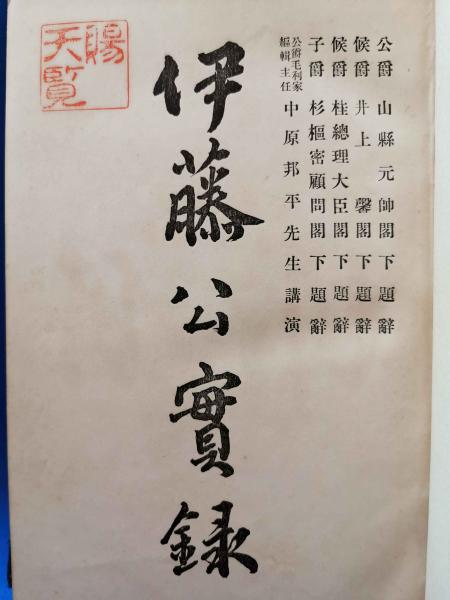 公爵 山縣元帥閣下題辭
侯爵 井上 馨閣下題辭
侯爵 桂總理大臣閣下題辭
子爵 杉樞密顧問閣下題辭
公爵毛利家
編輯主任
中原邦平先生講演
伊藤公實録
賜
天覧